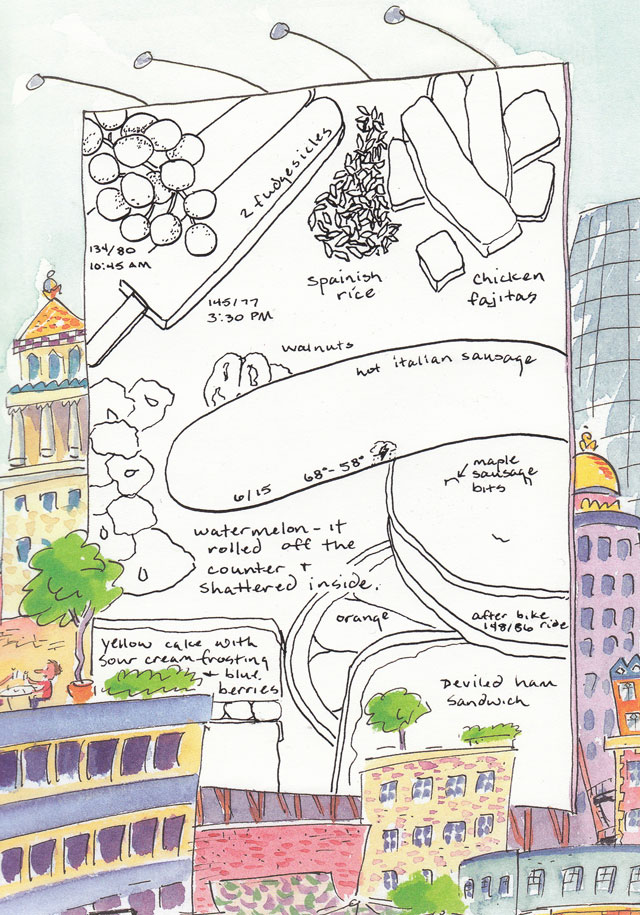 2 fudgesicles
134/80
10:45 AM
145/77
3:30 PM
Spainish
rice
chicken
fajitas
walnuts
hot italian sausage
6/15
68°-58°
maple
sausage
bits
watermelon - it
rolled off the
counter +
shattered inside.
orange
after bike
148/86 ride
yellow cake with
sour cream frosting
+ blue
berries
Deviled ham
sandwich